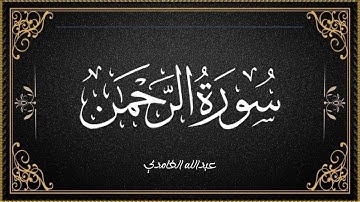 سُورَةُ الرَّحْمَن
عبدالله الغامدي